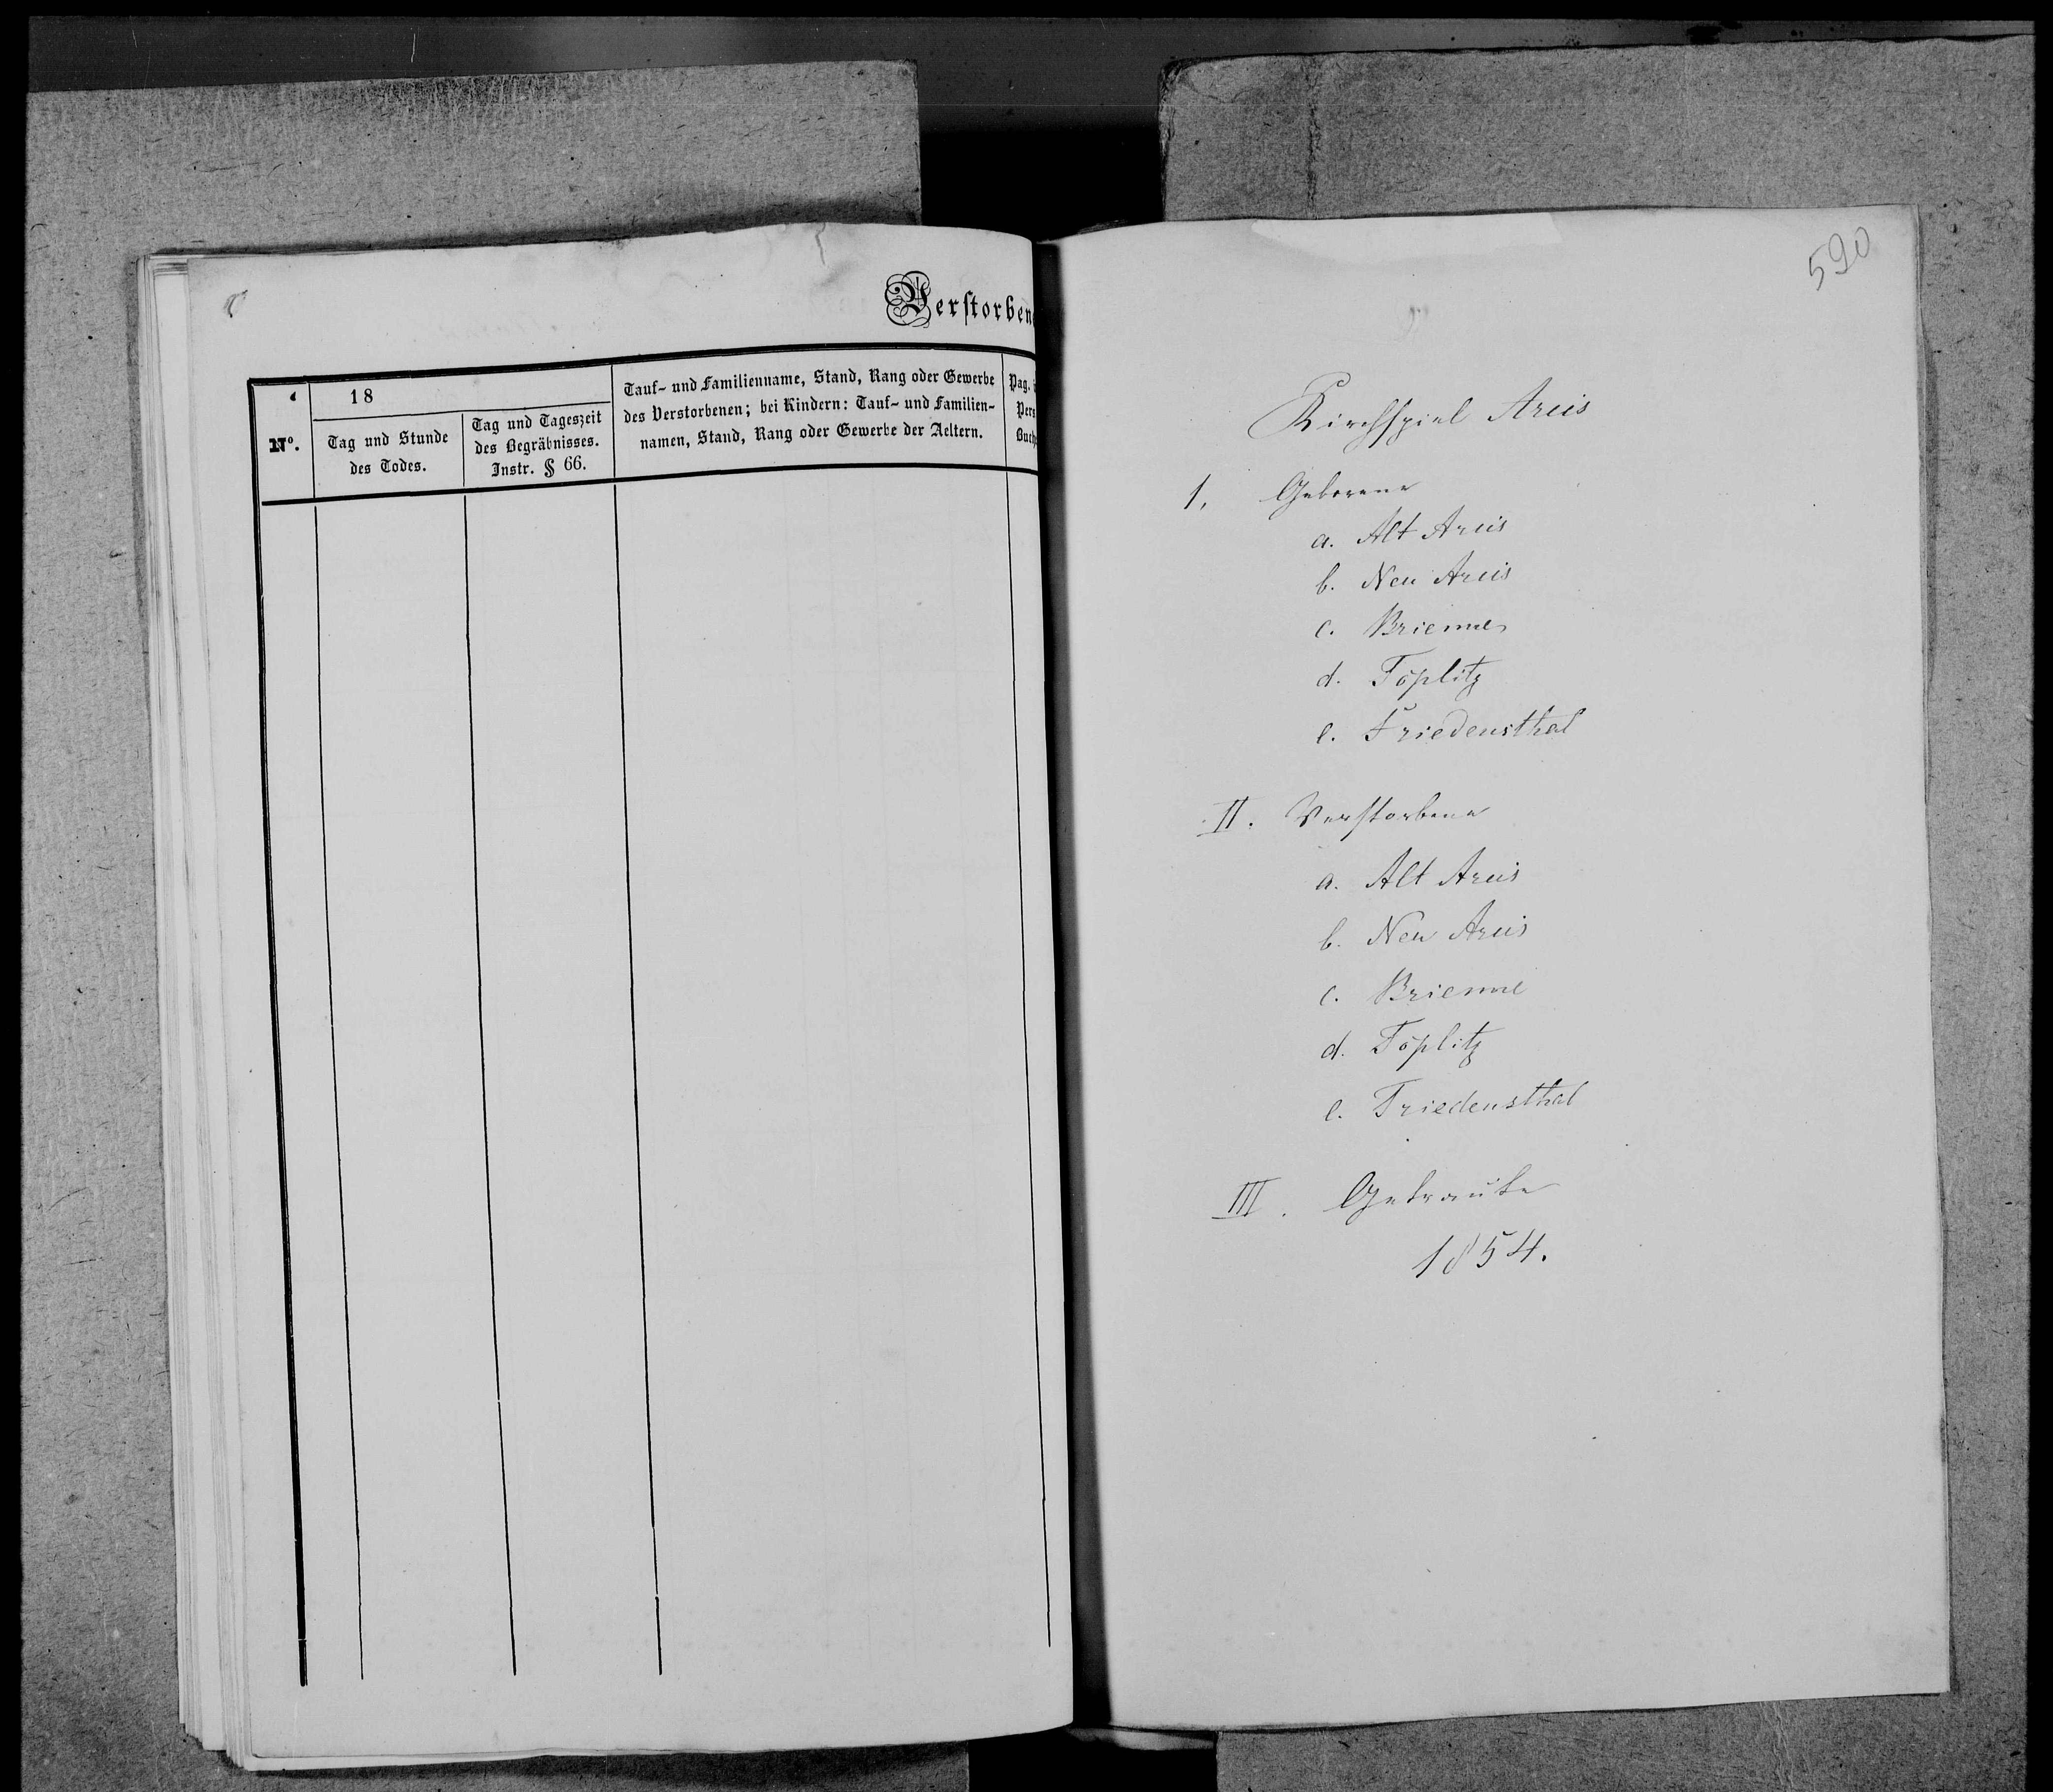 Verstorbene
No.
18
Tag und Stunde
des Todes.
Tag und Tageszeit
des Begräbnisses.
Instr. § 66.
Tauf- und Familienname, Stand, Rang oder Gewerbe
des Verstorbenen; bei Kindern: Tauf- und Familien-
namen, Stand, Rang oder Gewerbe der Aeltern.
Pag.
Pers
Buch
590
Kirchspiel Arcis
1. Geborene
a. Alt Arcis
b. Neu Arcis
c. Brienne
d. Töplitz
e. Friedensthal
II. Verstorbene
a. Alt Arcis
b. Neu Arcis
c. Brienne
d. Töplitz
e. Friedensthal
III. Getraute
1854.